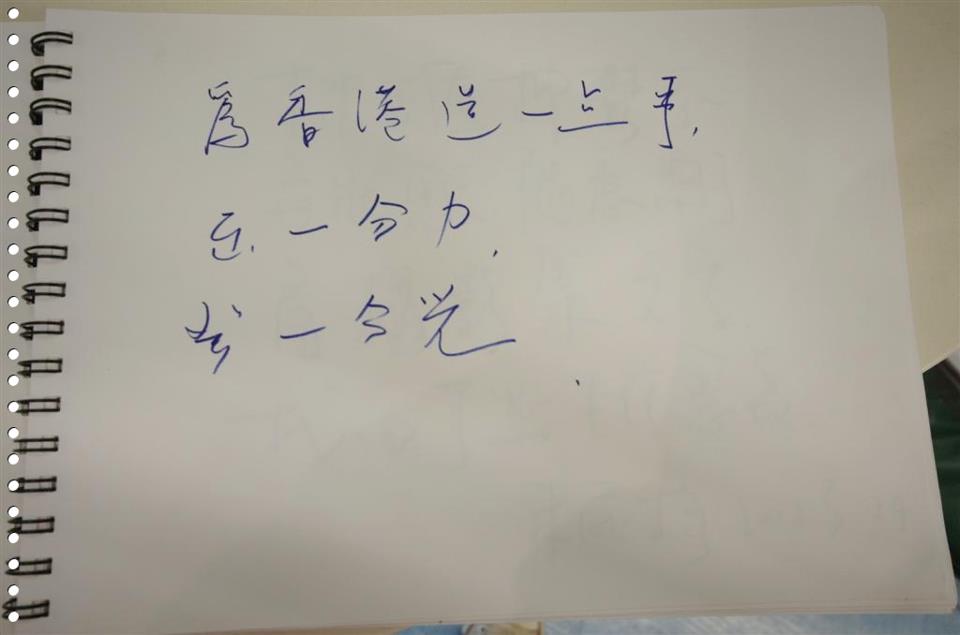 為香港造一点事,
尽一分力,
发一分光